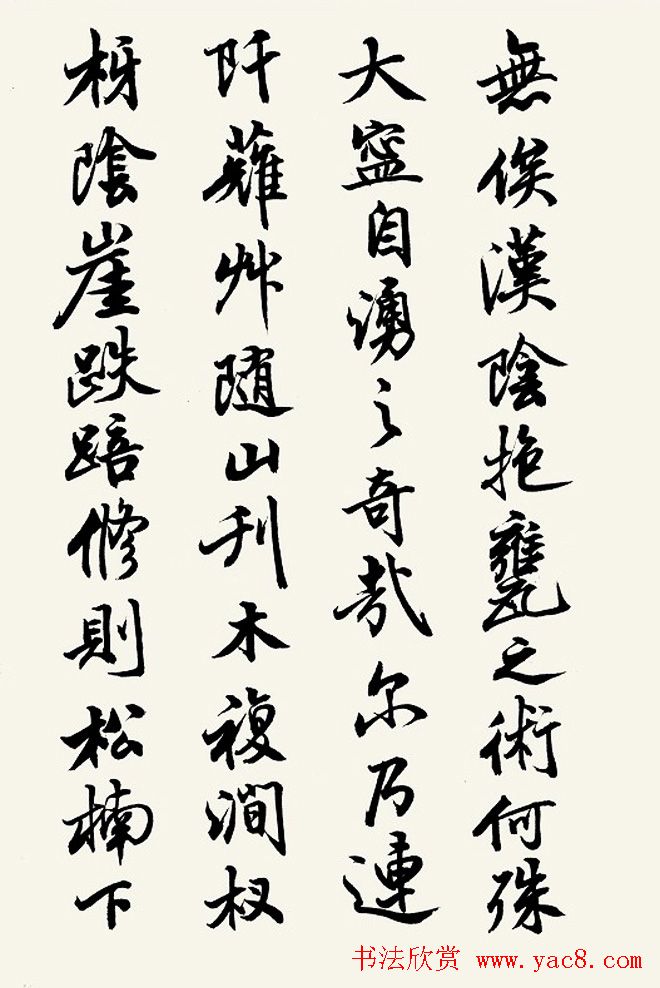 無俟漢陰抱甕之術何殊
大寍自湧之奇哉尔乃連
阡蕹艸随山刊木複澗杈
枒陰崖跌踣修則松楠下
书法欣赏 www.yac8.com